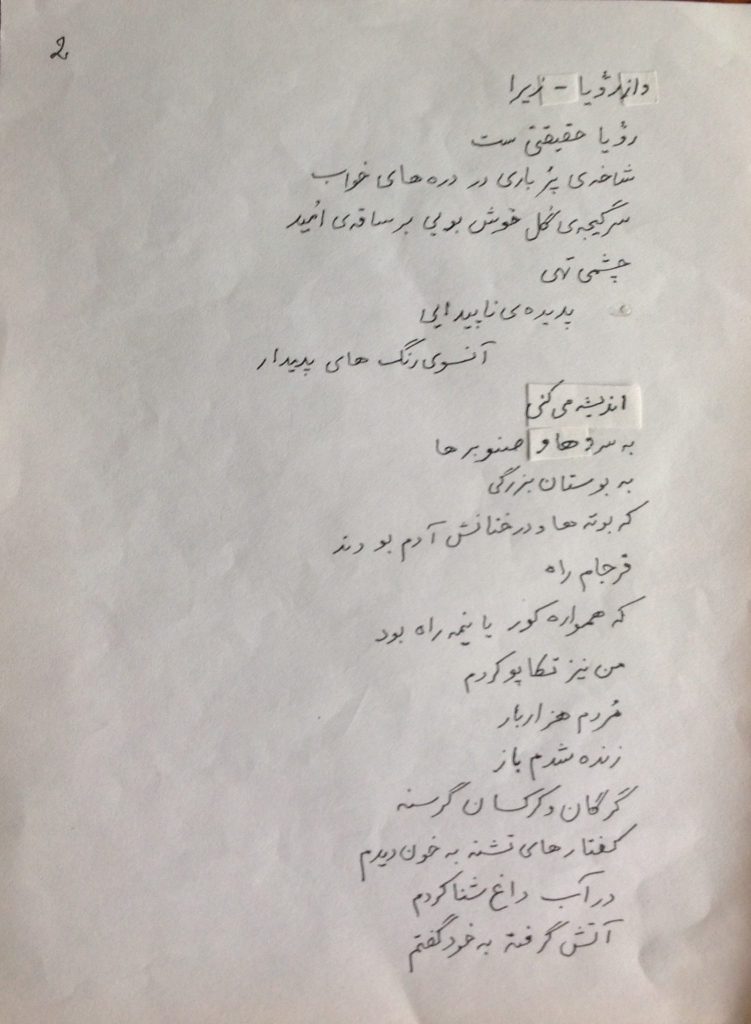 2
واز رؤیا - زیرا
رؤیا حقیقتی ست
شاخه‌ی پُر باری در دره های خواب
سرگیجه‌ی گُل خوش بویی بر ساقه‌ی اُمید
چشمی تهی
پدیده‌ی ناپیدایی
آنسوی رنگ های پدیدار
اندیشه می کنی
به سروها و صنوبرها
به بوستان بزرگی
که بوته ها و درختانش آدم بودند
فرجام راه
که همواره کور یا نیمه راه بود
من نیز تکاپو کردم
مُردم هزاربار
زنده شدم باز
گرگان و کرکسان گرسنه
کفتارهای تشنه به خون دیدم
در آب داغ شنا کردم
آتش گرفته به خود گفتم